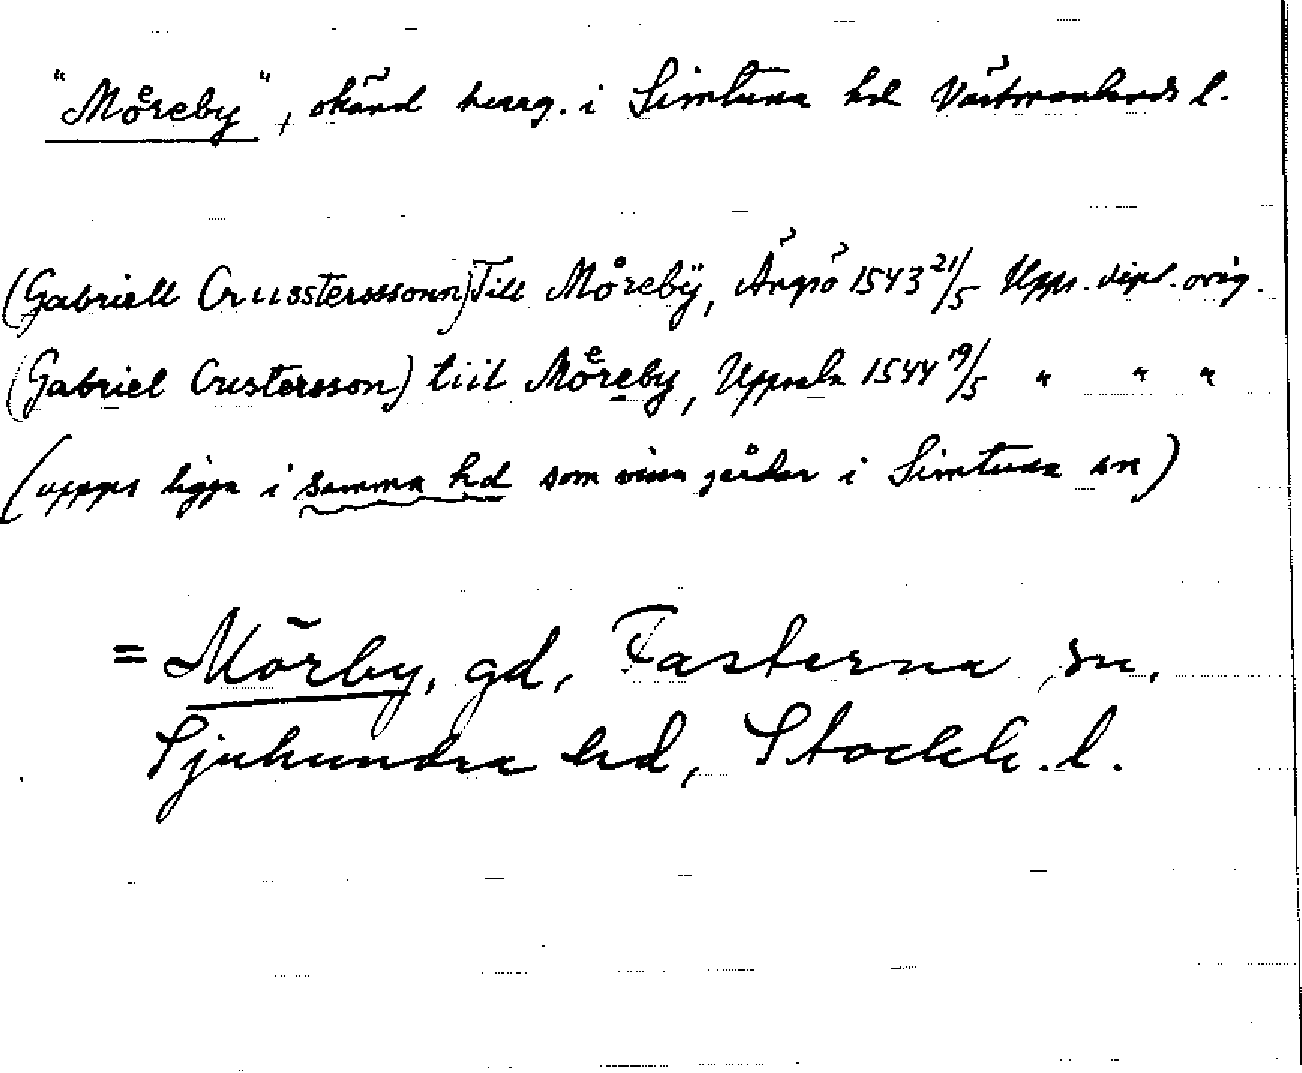 "Möreby", okänd herrg. i Simtuna hd Västmanlands l.
(Gabriell Crusstersssonn) Till Möreby, Ärgnö 1543 21/5 Upps. dipl. orig.
(Gabriel Crustersson) tiil Möreby, Uppsala 1544 19/5 " " "
(uppges ligga i samma hd som vissa gårdar i Simtuna sn)
= Mörby, gd, Fasterna sn,
Sjuhundra hd, Stockh. l.